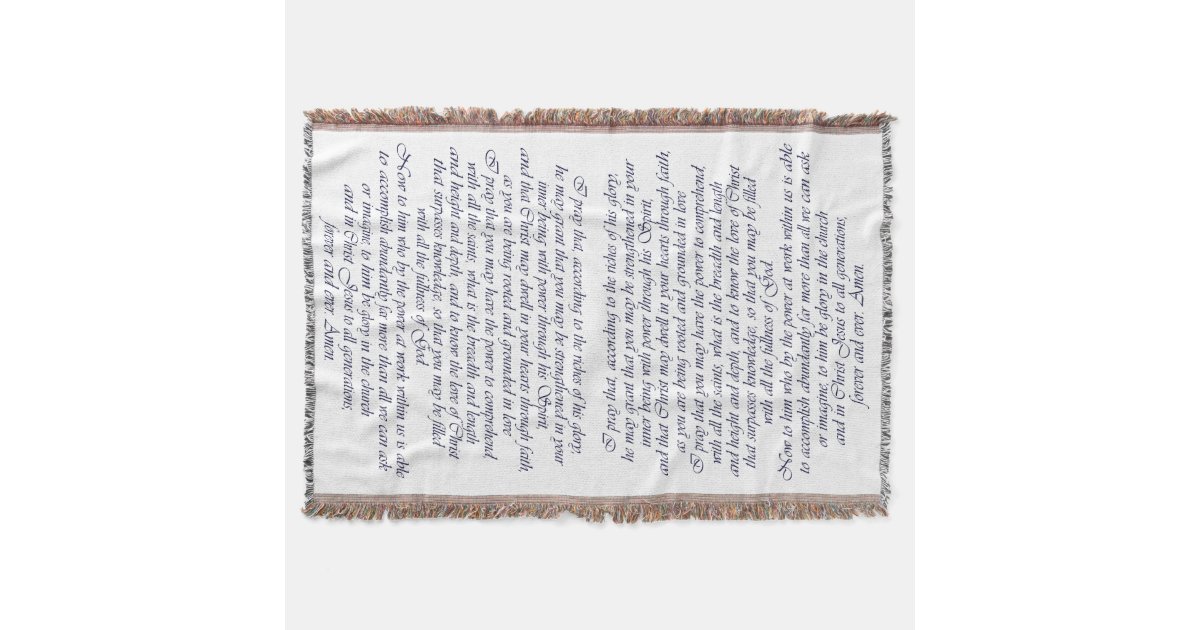 I pray that, according to the riches of his glory,
he may grant that you may be strengthened in your
inner being with power through his Spirit,
and that Christ may dwell in your hearts through faith,
as you are being rooted and grounded in love
I pray that you may have the power to comprehend,
with all the saints, what is the breadth and length
and height and depth, and to know the love of Christ
that surpasses knowledge, so that you may be filled
with all the fullness of God.
Now to him who by the power at work within us is able
to accomplish abundantly far more than all we can ask
or imagine, to him be glory in the church
and in Christ Jesus to all generations,
forever and ever. Amen.
I pray that, according to the riches of his glory,
he may grant that you may be strengthened in your
inner being with power through his Spirit,
and that Christ may dwell in your hearts through faith,
as you are being rooted and grounded in love
I pray that you may have the power to comprehend,
with all the saints, what is the breadth and length
and height and depth, and to know the love of Christ
that surpasses knowledge, so that you may be filled
with all the fullness of God.
Now to him who by the power at work within us is able
to accomplish abundantly far more than all we can ask
or imagine, to him be glory in the church
and in Christ Jesus to all generations,
forever and ever. Amen.